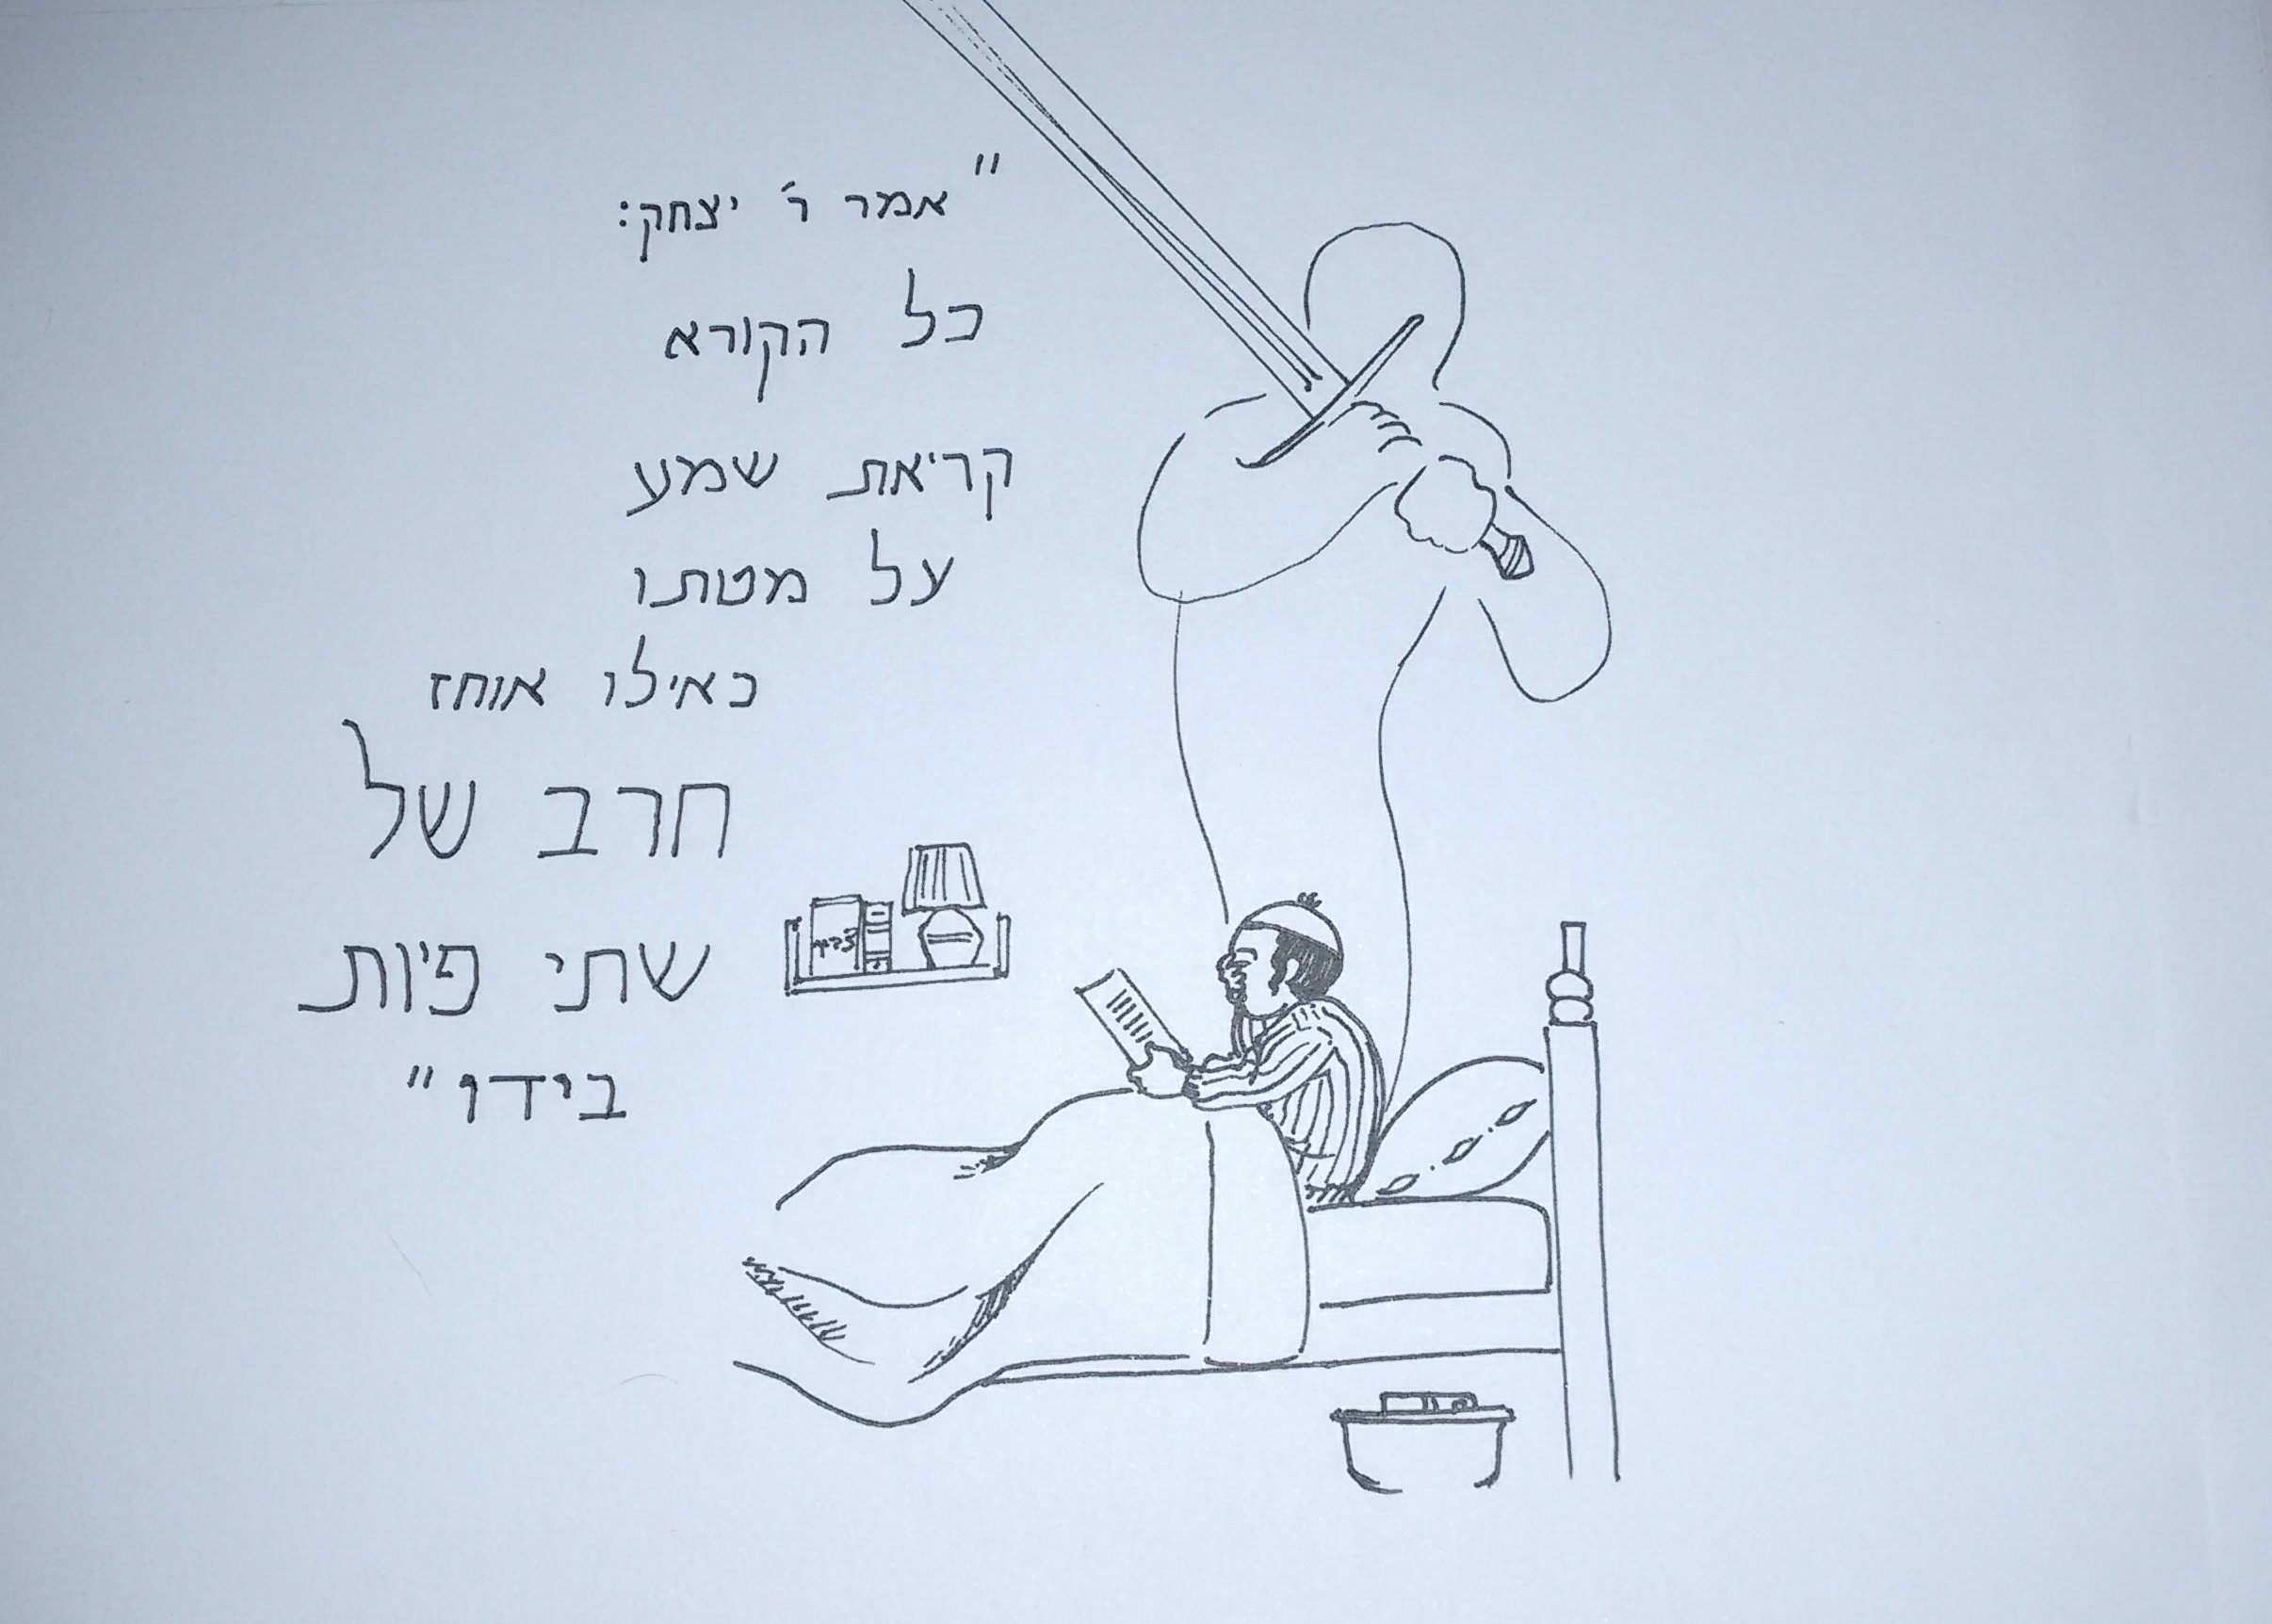 "אמר ר' יצחק:
כל הקורא
קריאת שמע
על מטתו
כאילו אוחז
חרב של
שתי פיות
בידו"